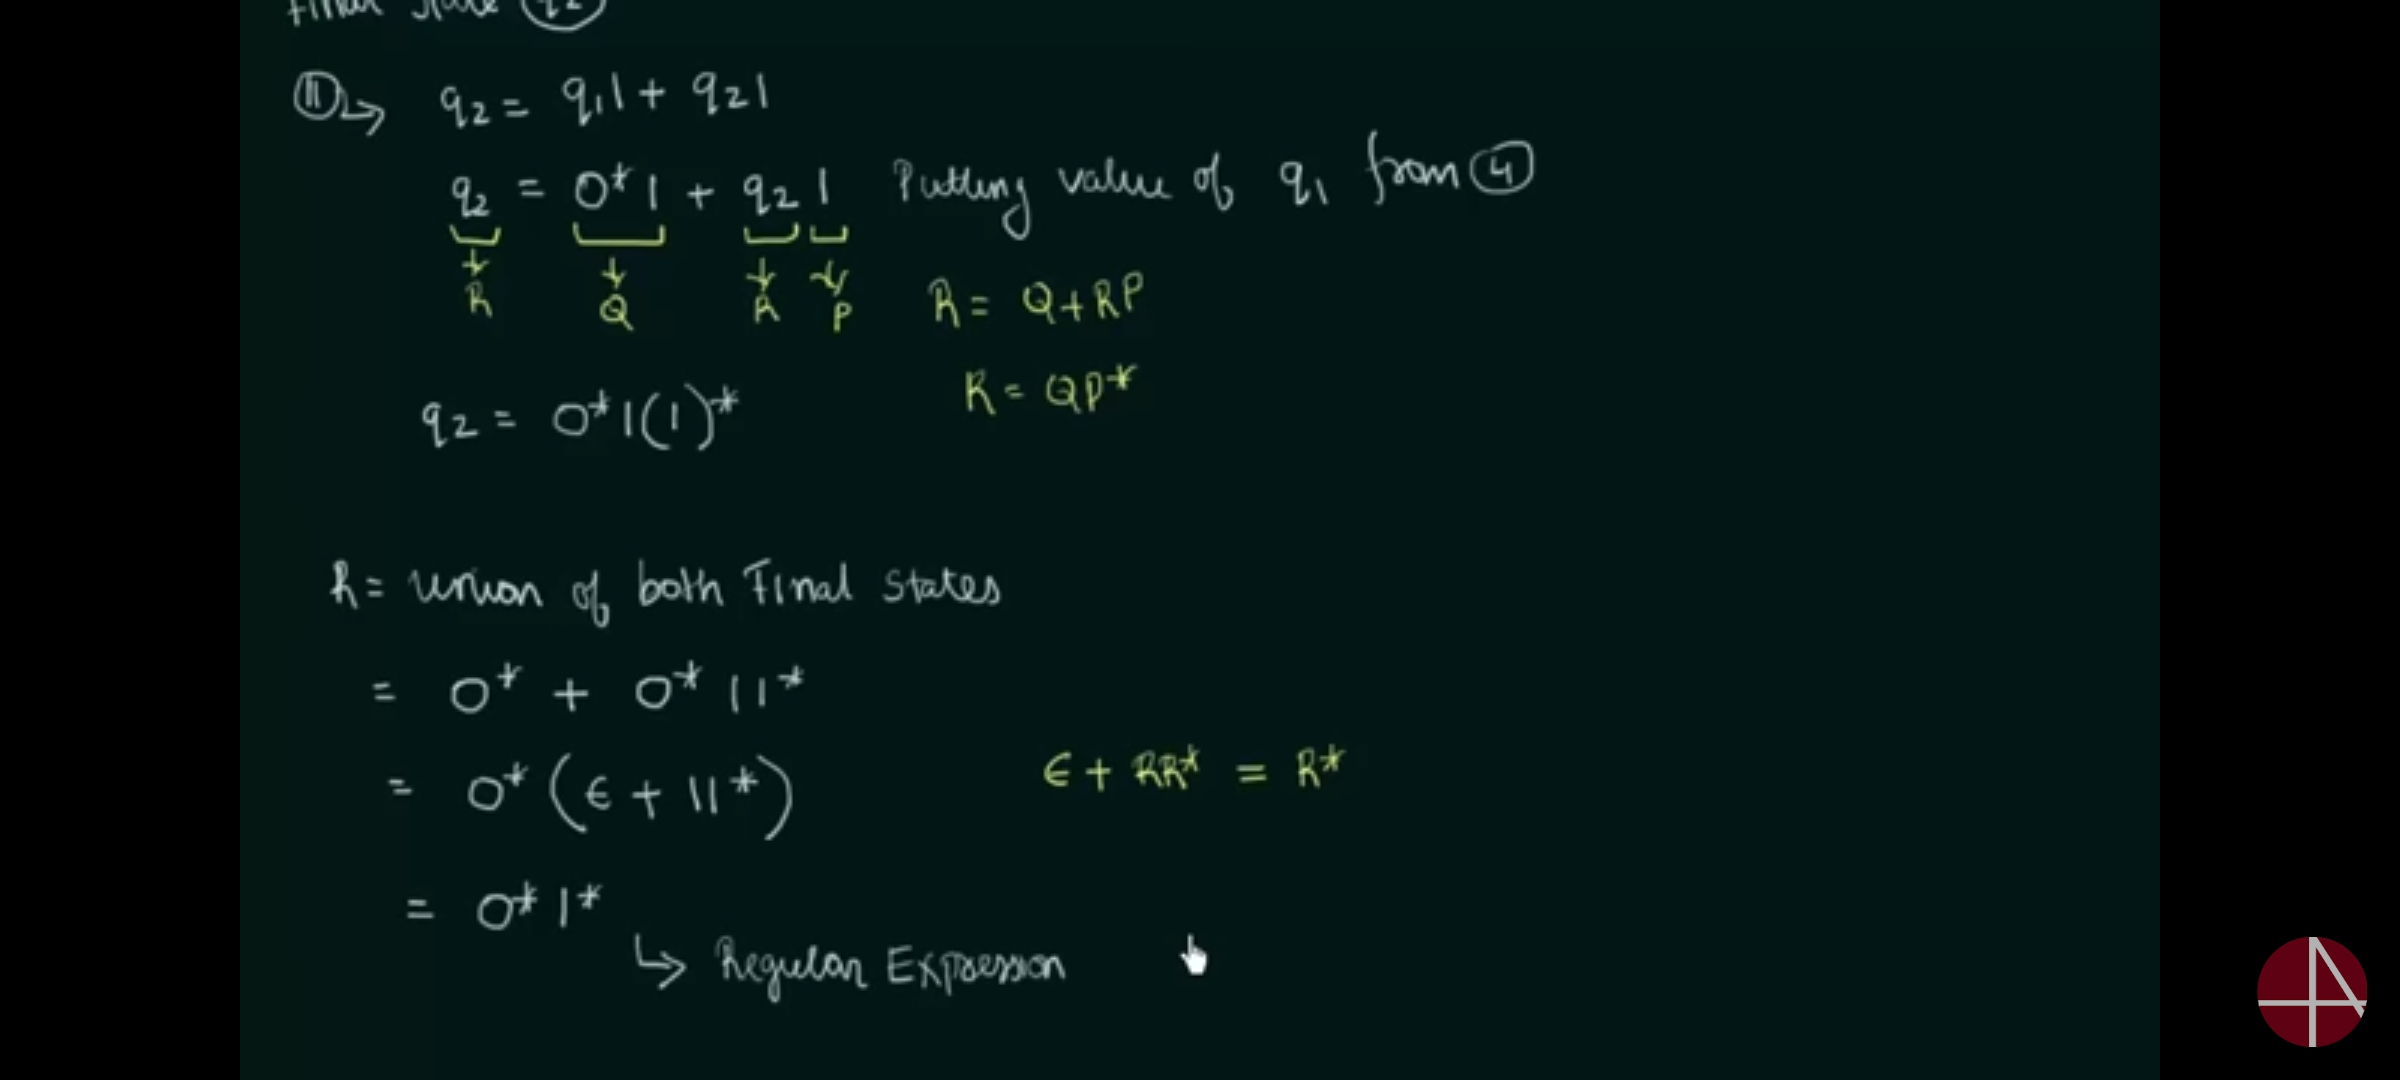 Final State q2
11 → q2 = q11 + q21
q2 = 0*1 + q21 Putting value of q1 from 4
R Q R P R = Q+RP
R = QP*
q2 = 0*1(1)*
R = union of both Final States
= 0* + 0*11*
= 0*(ϵ + 11*) ϵ + RR* = R*
= 0*1*
↳ Regular Expression